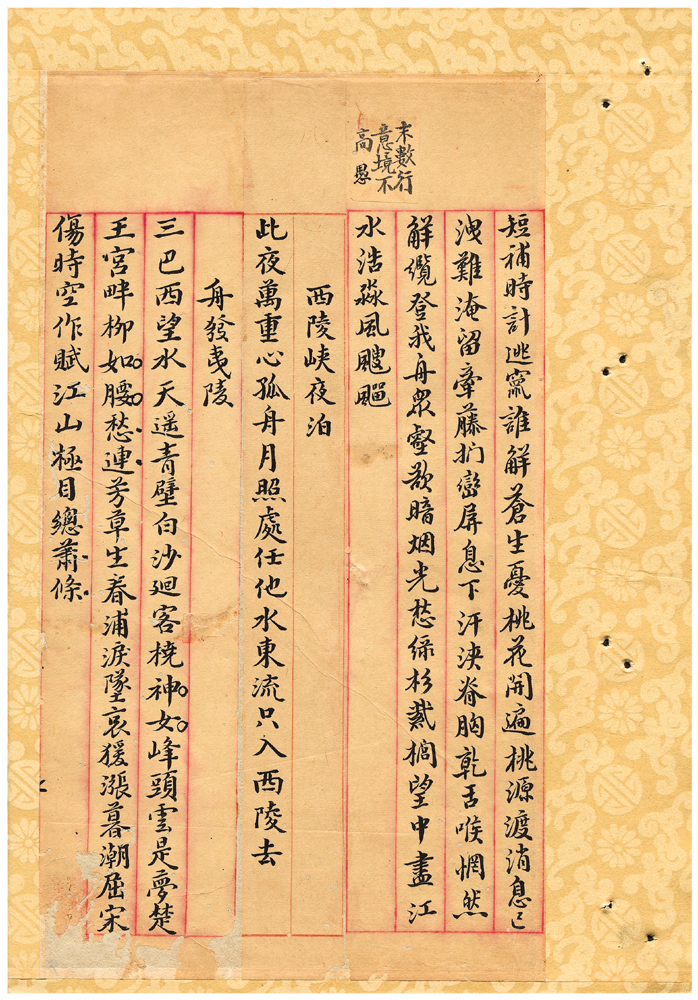 末數行
意境不
高愚
短補時計逃竄誰解蒼生憂桃花開遍桃源渡消息已
洩難淹留牽藤捫巒屏息下汗浹脊胸乾舌喉惘然
解纜登我舟眾壑歛暗烟光愁綠杉黳櫚望中盡江
水浩淼風颼飀
西陵峽夜泊
此夜萬重心孤舟月照處任他水東流只入西陵去
舟發夷陵
三巴西望水天遥青壁白沙廻客橈神女峰頭雲是夢楚
王宮畔柳如腰愁連芳草生春浦淚墜哀猨漲暮潮屈宋
傷時空作賦江山極目總蕭條